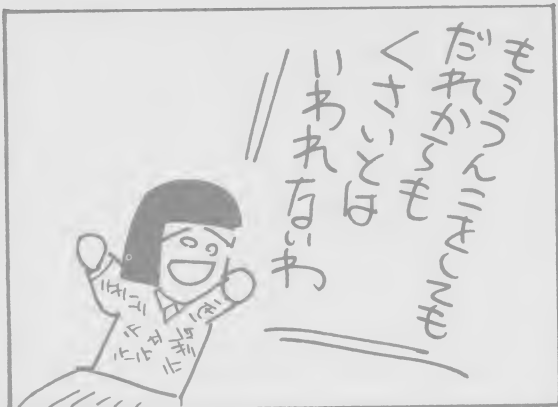 もううんこをしても
だれからも
くさいとは
いわれないわ